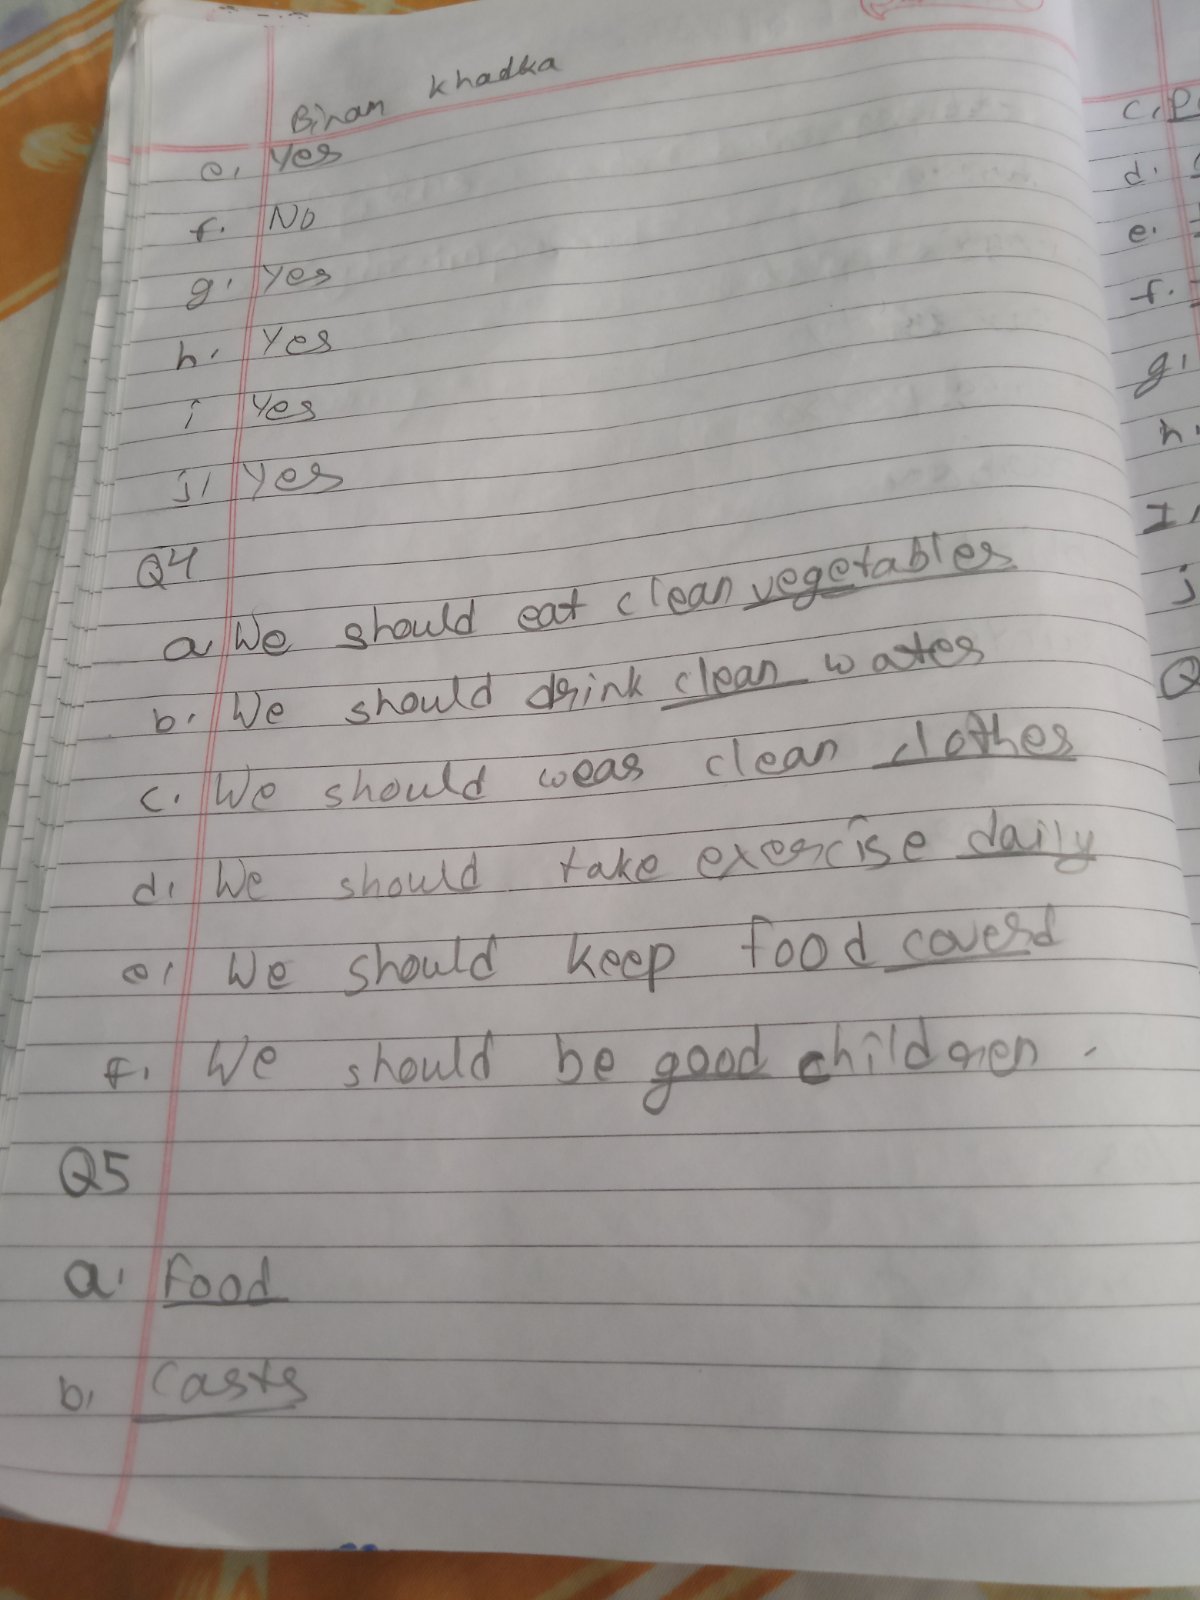 Binam Khadka
e. Yes
f. No
g. Yes
h. Yes
i Yes
j. Yes
Q4
a. We should eat clean vegetables
b. We should drink clean water
c. We should wear clean clothes
d. We should take exercise daily
e. We should keep food coverd
f. We should be good children.
Q5
a. Food
b. Casts
c.
d.
e.
f.
g.
h.
I.
j
Q